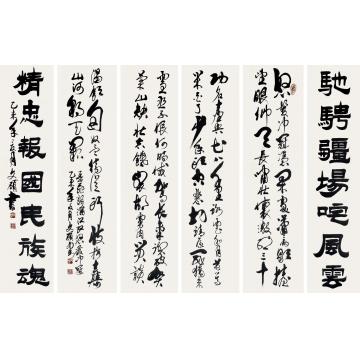 馳騁疆場叱風雲
怒髮衝冠憑闌處瀟瀟雨歇抬
望眼仰天長嘯壯懷激烈三十
功名塵與土八千里路雲和月莫等
閒白了少年頭空悲切靖康恥猶未
雪臣子恨何時滅駕長車踏破賀
蘭山缺壯志飢餐胡虜肉笑談
渴飲匈奴血待從頭收拾舊
山河朝天闕
精忠報國民族魂